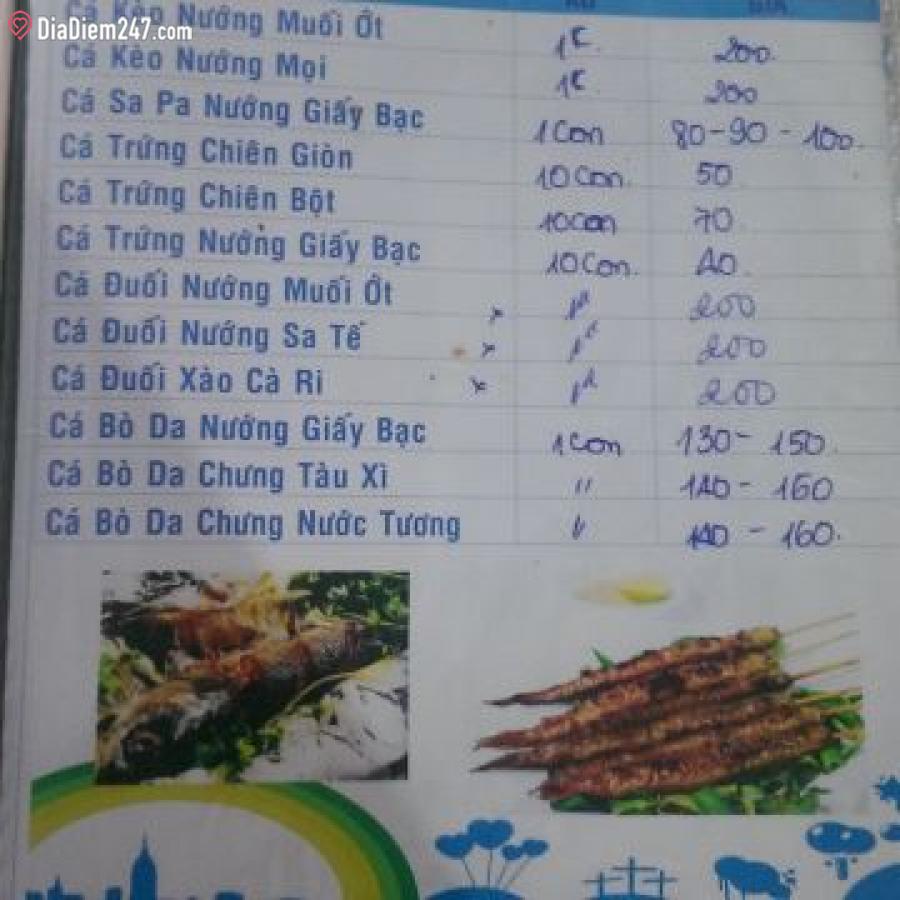 DiaDiem247.com
GIÁ
Cá Kèo Nướng Muối Ớt 200.
Cá Kèo Nướng Mọi 200
Cá Sa Pa Nướng Giấy Bạc 1 Con 80-90-100.
Cá Trứng Chiên Giòn 10 Con. 50
Cá Trứng Chiên Bột 10 Con 70
Cá Trứng Nướng Giấy Bạc 10 Con. 40.
Cá Đuối Nướng Muối Ớt 200
Cá Đuối Nướng Sa Tế 200
Cá Đuối Xào Cà Ri 200
Cá Bò Da Nướng Giấy Bạc 1 Con 130-150.
Cá Bò Da Chưng Tàu Xì " 140-160
Cá Bò Da Chưng Nước Tương " 140-160.